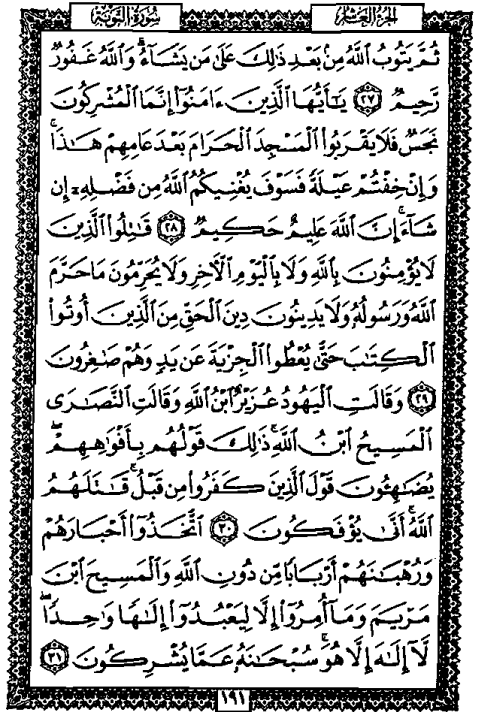 الجزء العاشر سورة التوبة
ثُمَّ يَتُوبُ ٱللَّهُ مِنۢ بَعْدِ ذَٰلِكَ عَلَىٰ مَن يَشَآءُ ۗ وَٱللَّهُ غَفُورٌ
رَّحِيمٌ ٢٧ يَـٰٓأَيُّهَا ٱلَّذِينَ ءَامَنُوٓا۟ إِنَّمَا ٱلْمُشْرِكُونَ
نَجَسٌ فَلَا يَقْرَبُوا۟ ٱلْمَسْجِدَ ٱلْحَرَامَ بَعْدَ عَامِهِمْ هَـٰذَا ۚ
وَإِنْ خِفْتُمْ عَيْلَةً فَسَوْفَ يُغْنِيكُمُ ٱللَّهُ مِن فَضْلِهِۦٓ إِن
شَآءَ ۚ إِنَّ ٱللَّهَ عَلِيمٌ حَكِيمٌ ٢٨ قَـٰتِلُوا۟ ٱلَّذِينَ
لَا يُؤْمِنُونَ بِٱللَّهِ وَلَا بِٱلْيَوْمِ ٱلْـَٔاخِرِ وَلَا يُحَرِّمُونَ مَا حَرَّمَ
ٱللَّهُ وَرَسُولُهُۥ وَلَا يَدِينُونَ دِينَ ٱلْحَقِّ مِنَ ٱلَّذِينَ أُوتُوا۟
ٱلْكِتَـٰبَ حَتَّىٰ يُعْطُوا۟ ٱلْجِزْيَةَ عَن يَدٍ وَهُمْ صَـٰغِرُونَ
٢٩ وَقَالَتِ ٱلْيَهُودُ عُزَيْرٌ ٱبْنُ ٱللَّهِ وَقَالَتِ ٱلنَّصَـٰرَى
ٱلْمَسِيحُ ٱبْنُ ٱللَّهِ ۖ ذَٰلِكَ قَوْلُهُم بِأَفْوَٰهِهِمْ ۖ
يُضَـٰهِـُٔونَ قَوْلَ ٱلَّذِينَ كَفَرُوا۟ مِن قَبْلُ ۚ قَـٰتَلَهُمُ
ٱللَّهُ ۚ أَنَّىٰ يُؤْفَكُونَ ٣٠ ٱتَّخَذُوٓا۟ أَحْبَارَهُمْ
وَرُهْبَـٰنَهُمْ أَرْبَابًا مِّن دُونِ ٱللَّهِ وَٱلْمَسِيحَ ٱبْنَ
مَرْيَمَ وَمَآ أُمِرُوٓا۟ إِلَّا لِيَعْبُدُوٓا۟ إِلَـٰهًا وَٰحِدًا ۖ
لَّآ إِلَـٰهَ إِلَّا هُوَ ۚ سُبْحَـٰنَهُۥ عَمَّا يُشْرِكُونَ ٣١
١٩١